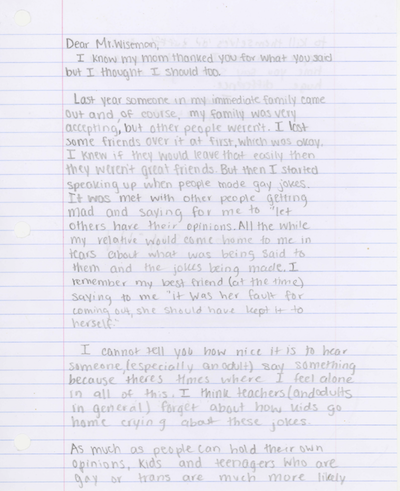 Dear Mr. Wiseman,
I know my mom thanked you for what you said
but I thought I should too.
Last year someone in my immediate family came
out and of course, my family was very
accepting, but other people weren't. I lost
some friends over it at first, which was okay.
I knew if they would leave that easily then
they weren't great friends. But then I started
speaking up when people made gay jokes.
It was met with other people getting
mad and saying for me to "let
others have their opinions. All the while
my relative would come home to me in
tears about what was being said to
them and the jokes being made. I
remember my best friend (at the time)
saying to me "it was her fault for
coming out, she should have kept it to
herself."
I cannot tell you how nice it is to hear
someone, (especially an adult) say something
because theres times where I feel alone
in all of this. I think teachers (and adults
in general) forget about how kids go
home crying about these jokes.
As much as people can hold their own
opinions, kids and teenagers who are
gay or trans are much more likely